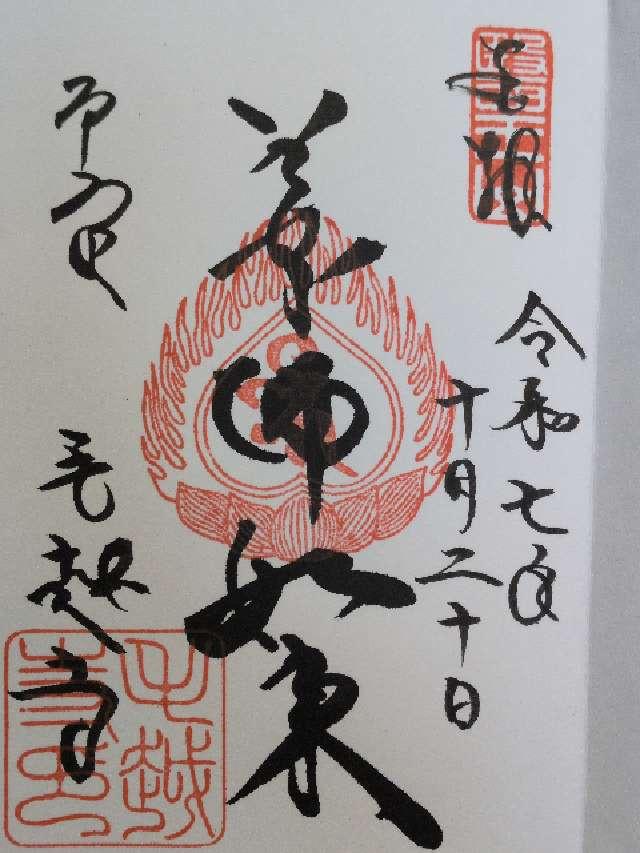 奉拝
令和七年
十月二十日
薬師如来
平泉
毛越寺
毛越寺印